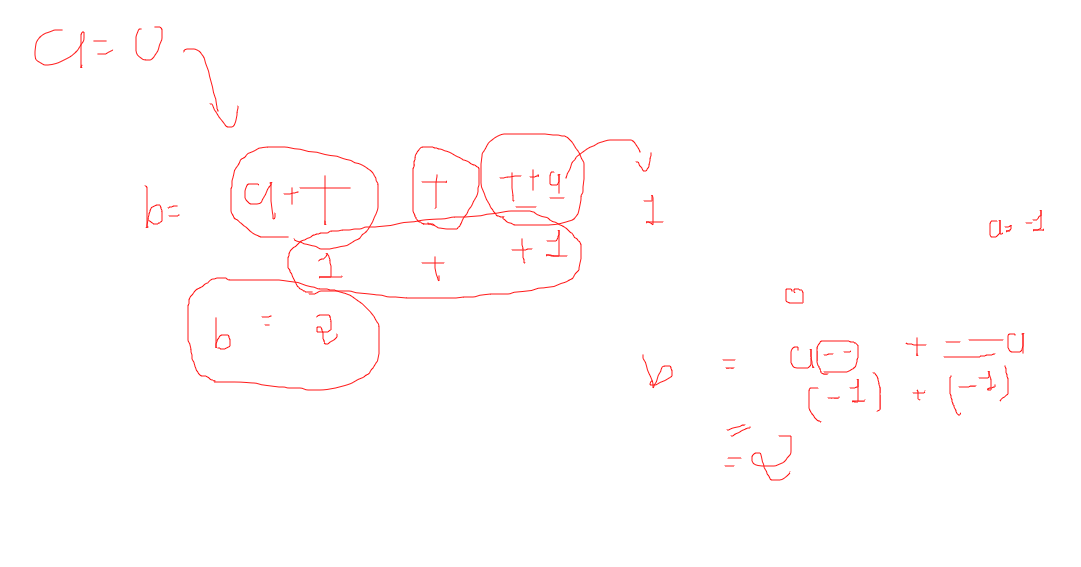 a = 0
b = a++ + ++a 1
1 + +1
b = 2
a = -1
b = a-- + --a
(-1) + (-1)
=
= 2